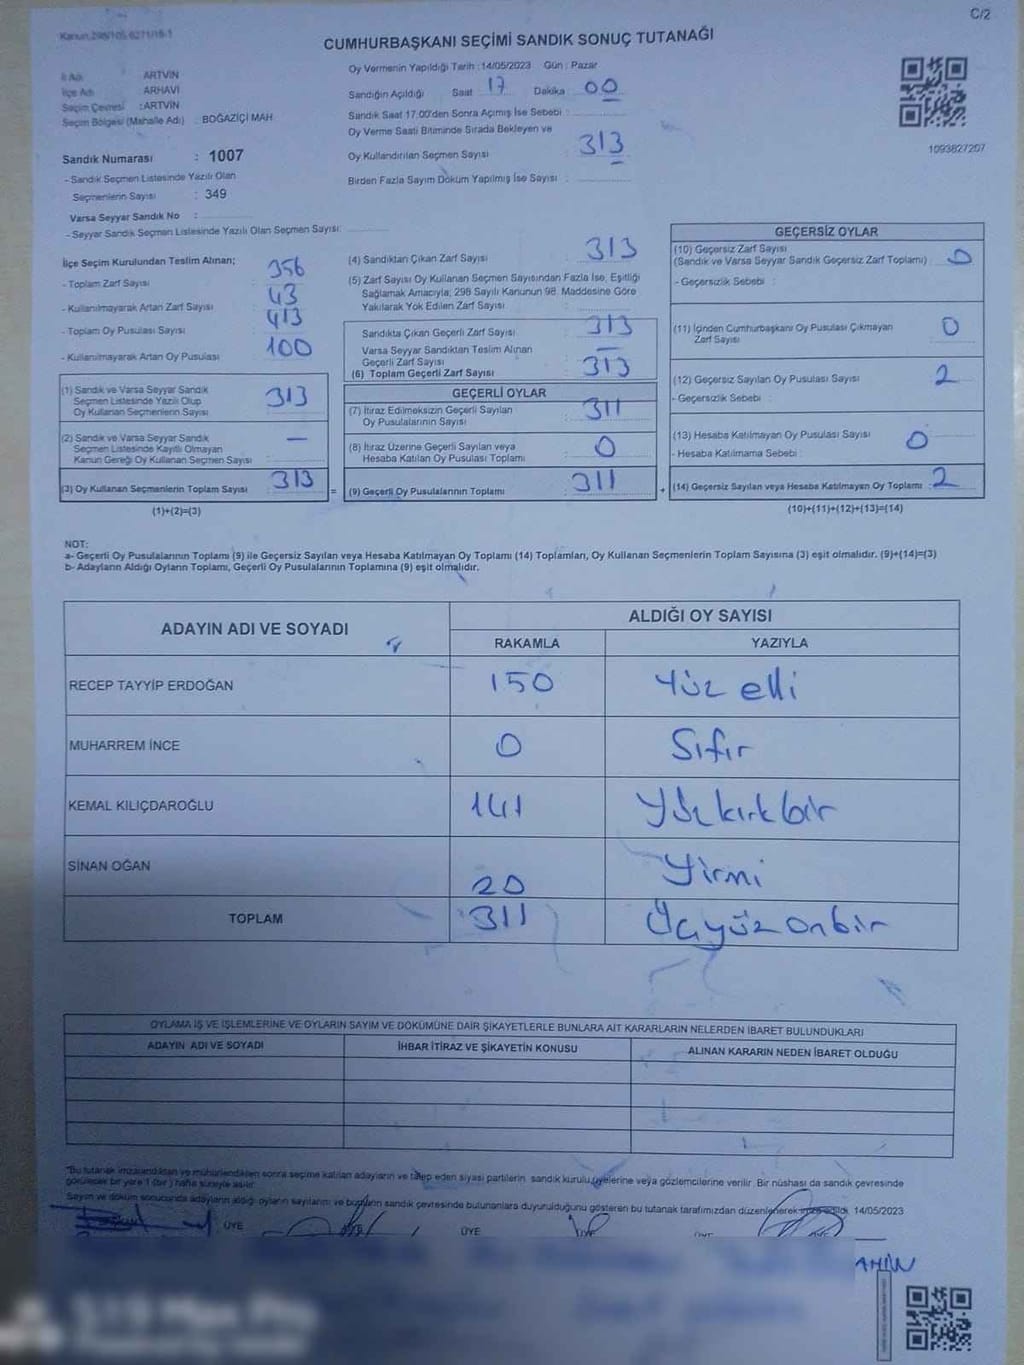 C/2
Kanun 298/105 6271/16-1
CUMHURBAŞKANI SEÇİMİ SANDIK SONUÇ TUTANAĞI
İl Adı ARTVİN
İlçe Adı ARHAVİ
Seçim Çevresi :ARTVİN
Seçim Bölgesi (Mahalle Adı) : BOĞAZİÇİ MAH
Sandık Numarası : 1007
- Sandık Seçmen Listesinde Yazılı Olan
Seçmenlerin Sayısı : 349
Varsa Seyyar Sandık No :
- Seyyar Sandık Seçmen Listesinde Yazılı Olan Seçmen Sayısı:
Oy Vermenin Yapıldığı Tarih :14/05/2023 Gün : Pazar
Sandığın Açıldığı Saat 17 Dakika 00
Sandık Saat 17:00'den Sonra Açılmış İse Sebebi :
Oy Verme Saati Bitiminde Sırada Bekleyen ve
Oy Kullandırılan Seçmen Sayısı : 313
Birden Fazla Sayım Döküm Yapılmış İse Sayısı :
1093827207
İlçe Seçim Kurulundan Teslim Alınan;
- Toplam Zarf Sayısı : 356
- Kullanılmayarak Artan Zarf Sayısı : 43
- Toplam Oy Pusulası Sayısı : 413
- Kullanılmayarak Artan Oy Pusulası : 100
(1) Sandık ve Varsa Seyyar Sandık
Seçmen Listesinde Yazılı Olup
Oy Kullanan Seçmenlerin Sayısı : 313
(2) Sandık ve Varsa Seyyar Sandık
Seçmen Listesinde Kayıtlı Olmayan
Kanun Gereği Oy Kullanan Seçmen Sayısı : —
(3) Oy Kullanan Seçmenlerin Toplam Sayısı : 313
(1)+(2)=(3)
(4) Sandıktan Çıkan Zarf Sayısı : 313
(5) Zarf Sayısı Oy Kullanan Seçmen Sayısından Fazla İse, Eşitliği
Sağlamak Amacıyla, 298 Sayılı Kanunun 98. Maddesine Göre
Yakılarak Yok Edilen Zarf Sayısı :
Sandıkta Çıkan Geçerli Zarf Sayısı : 313
Varsa Seyyar Sandıktan Teslim Alınan
Geçerli Zarf Sayısı : —
(6) Toplam Geçerli Zarf Sayısı : 313
GEÇERLİ OYLAR
(7) İtiraz Edilmeksizin Geçerli Sayılan
Oy Pusulalarının Sayısı : 311
(8) İtiraz Üzerine Geçerli Sayılan veya
Hesaba Katılan Oy Pusulası Toplamı : 0
= (9) Geçerli Oy Pusulalarının Toplamı : 311
GEÇERSİZ OYLAR
(10) Geçersiz Zarf Sayısı
(Sandık ve Varsa Seyyar Sandık Geçersiz Zarf Toplamı) : 0
- Geçersizlik Sebebi :
(11) İçinden Cumhurbaşkanı Oy Pusulası Çıkmayan
Zarf Sayısı : 0
(12) Geçersiz Sayılan Oy Pusulası Sayısı : 2
- Geçersizlik Sebebi :
(13) Hesaba Katılmayan Oy Pusulası Sayısı : 0
- Hesaba Katılmama Sebebi :
+ (14) Geçersiz Sayılan veya Hesaba Katılmayan Oy Toplamı : 2
(10)+(11)+(12)+(13)=(14)
NOT:
a- Geçerli Oy Pusulalarının Toplamı (9) ile Geçersiz Sayılan veya Hesaba Katılmayan Oy Toplamı (14) Toplamları, Oy Kullanan Seçmenlerin Toplam Sayısına (3) eşit olmalıdır. (9)+(14)=(3)
b- Adayların Aldığı Oyların Toplamı, Geçerli Oy Pusulalarının Toplamına (9) eşit olmalıdır.
ADAYIN ADI VE SOYADI ALDIĞI OY SAYISI
RAKAMLA YAZIYLA
RECEP TAYYİP ERDOĞAN 150 Yüz elli
MUHARREM İNCE 0 Sıfır
KEMAL KILIÇDAROĞLU 141 Yüzkırkbir
SİNAN OĞAN 20 Yirmi
TOPLAM 311 Üçyüzonbir
OYLAMA İŞ VE İŞLEMLERİNE VE OYLARIN SAYIM VE DÖKÜMÜNE DAİR ŞİKAYETLERLE BUNLARA AİT KARARLARIN NELERDEN İBARET BULUNDUKLARI
ADAYIN ADI VE SOYADI İHBAR İTİRAZ VE ŞİKAYETİN KONUSU ALINAN KARARIN NEDEN İBARET OLDUĞU
"Bu tutanak imzalandıktan ve mühürlendikten sonra seçime katılan adayların ve talep eden siyasi partilerin sandık kurulu üyelerine veya gözlemcilerine verilir. Bir nüshası da sandık çevresinde
görülecek bir yere 1 (bir) hafta süreyle asılır.
Sayım ve döküm sonucunda adayların aldığı oyların sayılarını ve bunların sandık çevresinde bulunanlara duyurulduğunu gösteren bu tutanak tarafımızdan düzenlenerek imza edildi. 14/05/2023
ÜYE ÜYE ÜYE ÜYE